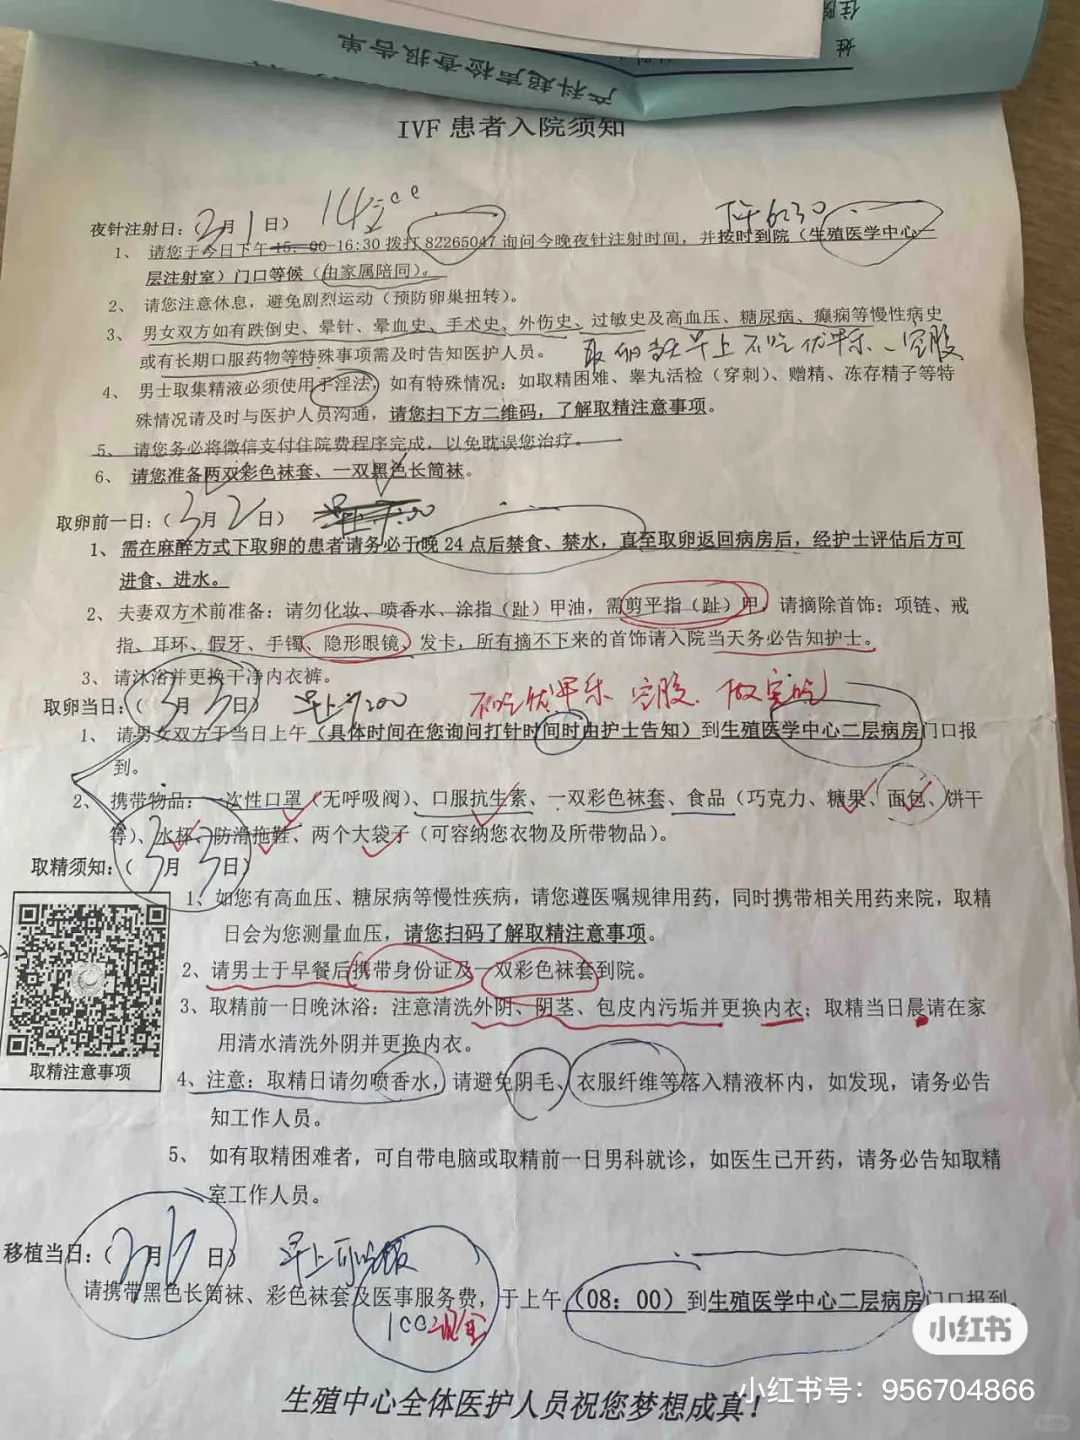 产科超声检查报告单
姓
住院
IVF 患者入院须知
14:00
下午6:30
夜针注射日：（3月1日）
1、请您于今日下午15：00-16:30 拨打 82265047 询问今晚夜针注射时间，并按时到院（生殖医学中心一
层注射室）门口等候（由家属陪同）。
2、请您注意休息，避免剧烈运动（预防卵巢扭转）。
3、男女双方如有跌倒史、晕针、晕血史、手术史、外伤史、过敏史及高血压、糖尿病、癫痫等慢性病史
或有长期口服药物等特殊事项需及时告知医护人员。
取卵当天早上不吃优甲乐、定股
4、男士取集精液必须使用手淫法，如有特殊情况：如取精困难、睾丸活检（穿刺）、赠精、冻存精子等特
殊情况请及时与医护人员沟通，请您扫下方二维码，了解取精注意事项。
5、请您务必将微信支付住院费程序完成，以免耽误您治疗。
6、请您准备两双彩色袜套、一双黑色长筒袜。
取卵前一日：（3月2日）
早上7:00
1、需在麻醉方式下取卵的患者请务必于晚 24 点后禁食、禁水，直至取卵返回病房后，经护士评估后方可
进食、进水。
2、夫妻双方术前准备：请勿化妆、喷香水、涂指（趾）甲油，需剪平指（趾）甲，请摘除首饰：项链、戒
指、耳环、假牙、手镯、隐形眼镜、发卡，所有摘不下来的首饰请入院当天务必告知护士。
3、请沐浴并更换干净内衣裤。
取卵当日：（3月3日）
早上7:00
不吃优甲乐 定股 做完吃
1、请男女双方于当日上午（具体时间在您询问打针时间时由护士告知）到生殖医学中心二层病房门口报
到。
2、携带物品：一次性口罩（无呼吸阀）、口服抗生素、一双彩色袜套、食品（巧克力、糖果、面包、饼干
等）、水杯、防滑拖鞋、两个大袋子（可容纳您衣物及所带物品）。
取精须知：（3月3日）
1、如您有高血压、糖尿病等慢性疾病，请您遵医嘱规律用药，同时携带相关用药来院，取精
日会为您测量血压，请您扫码了解取精注意事项。
2、请男士于早餐后携带身份证及一双彩色袜套到院。
3、取精前一日晚沐浴：注意清洗外阴、阴茎、包皮内污垢并更换内衣；取精当日晨请在家
用清水清洗外阴并更换内衣。
取精注意事项
4、注意：取精日请勿喷香水，请避免阴毛、衣服纤维等落入精液杯内，如发现，请务必告
知工作人员。
5、如有取精困难者，可自带电脑或取精前一日男科就诊，如医生已开药，请务必告知取精
室工作人员。
移植当日：（3月6日）
早上可吃饭
请携带黑色长筒袜、彩色袜套及医事服务费，于上午（08：00）到生殖医学中心二层病房门口报到。
100现金
生殖中心全体医护人员祝您梦想成真！
小红书
小红书号：956704866